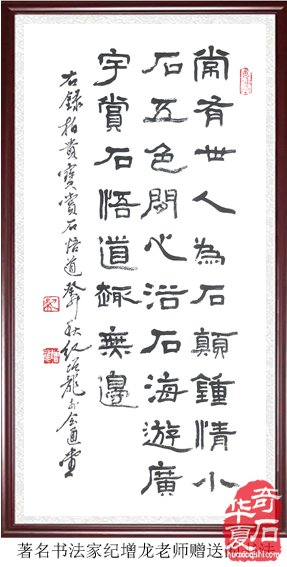 常有世人為石顛鍾情小
石五色間心浴石海遊廣
宇賞石悟道趣無邊
右錄柏貴寶賞石悟道 秋紀增龍書會通堂
华夏奇石
著名书法家纪增龙老师赠送书法